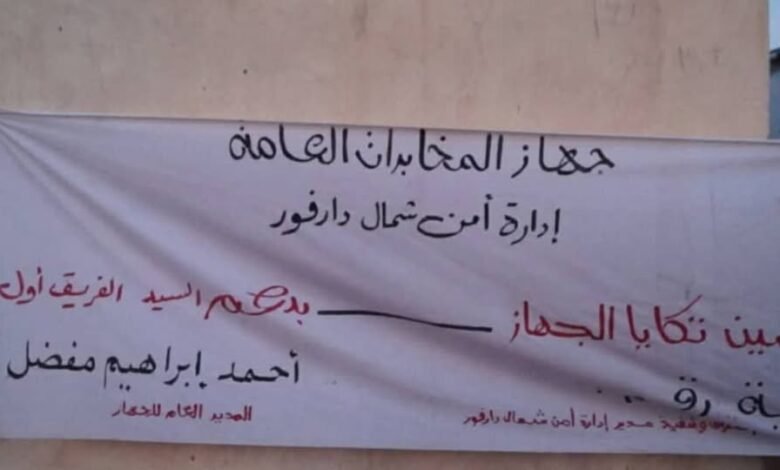 جهاز المخابرات العامة
إدارة أمن شمال دارفور
تكايا الجهاز ــــــــ بدعم السيد الفريق أول
أحمد إبراهيم مفضل
وتنفيذ مدير إدارة أمن شمال دارفور المدير العام للجهاز